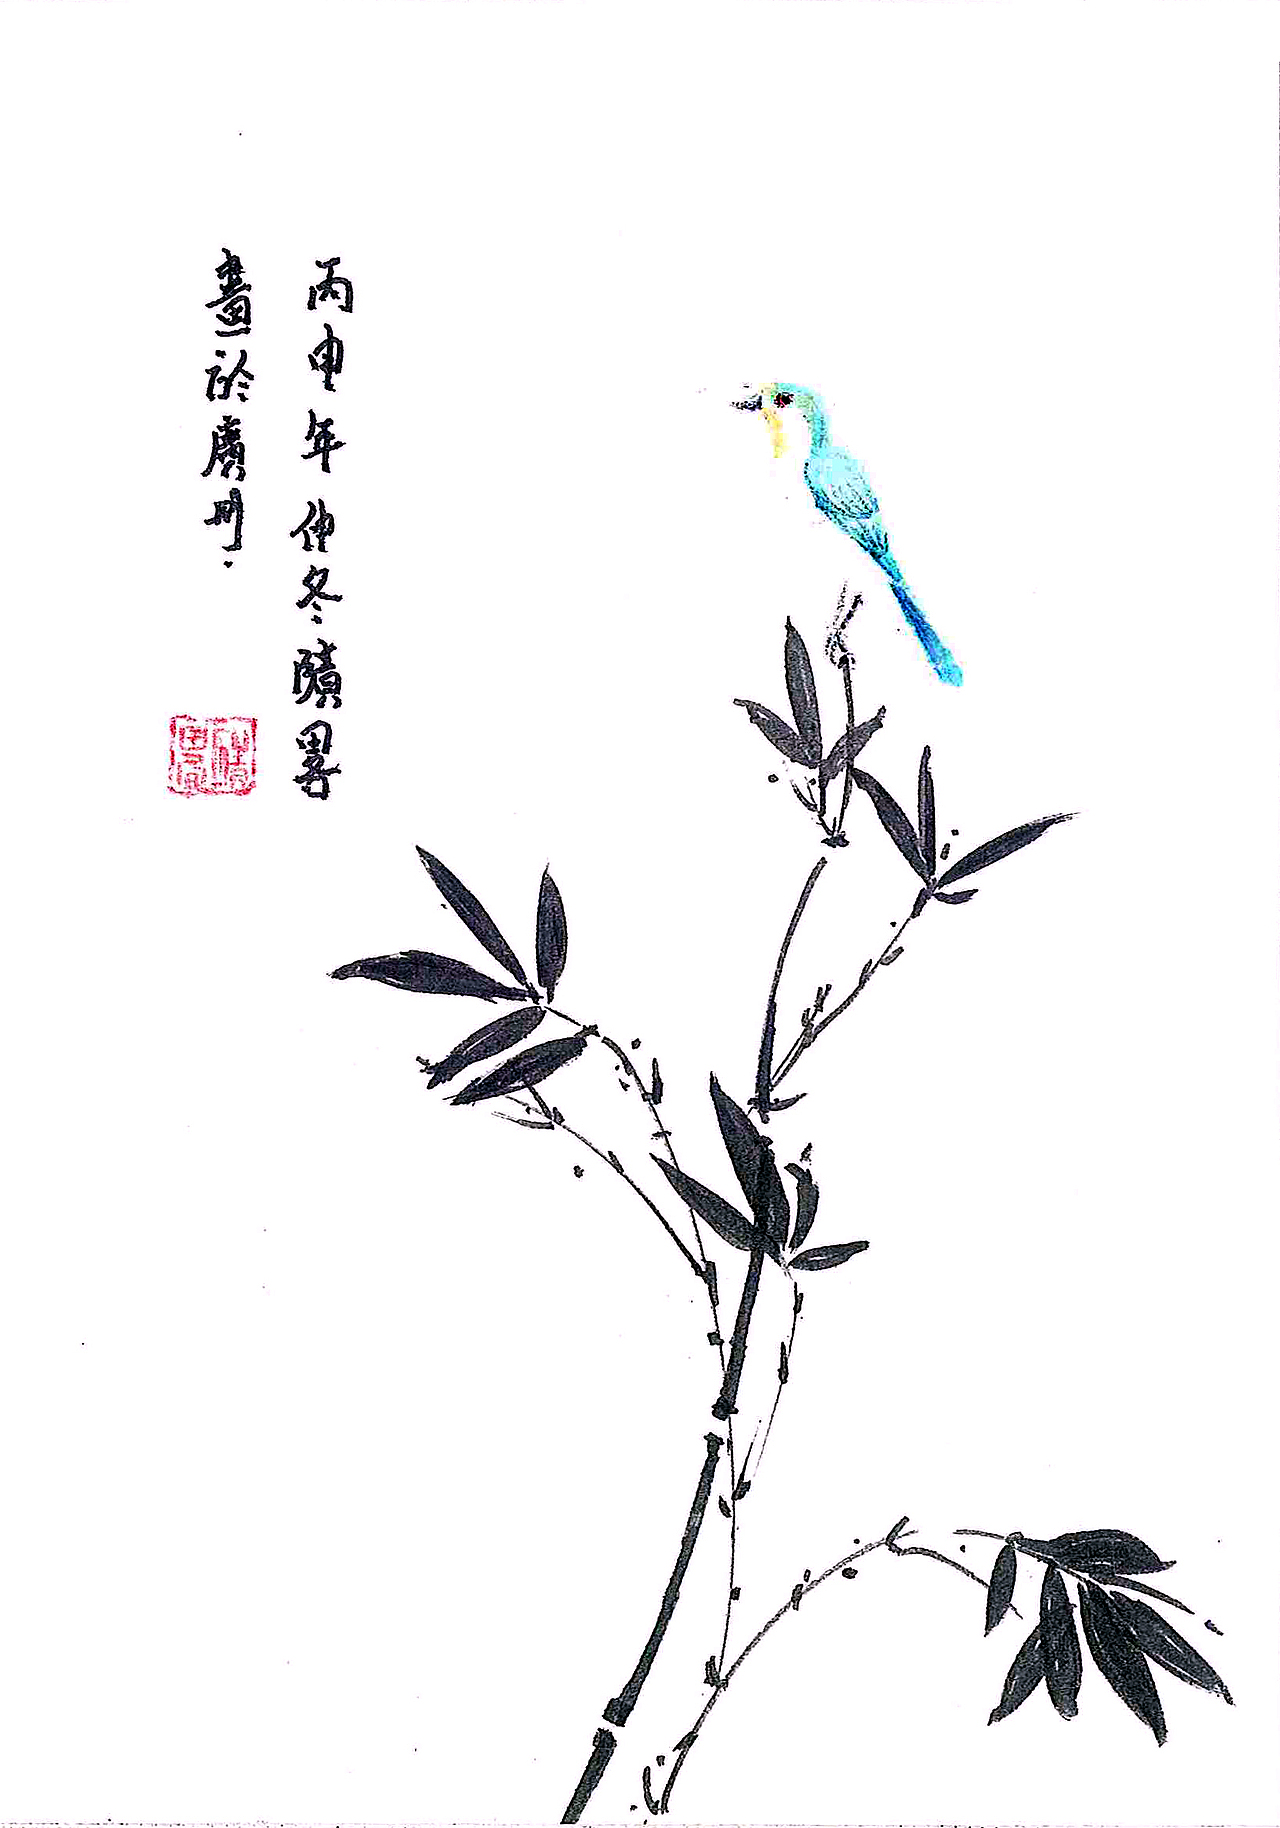 丙申年仲冬賾畧
畫於廣州